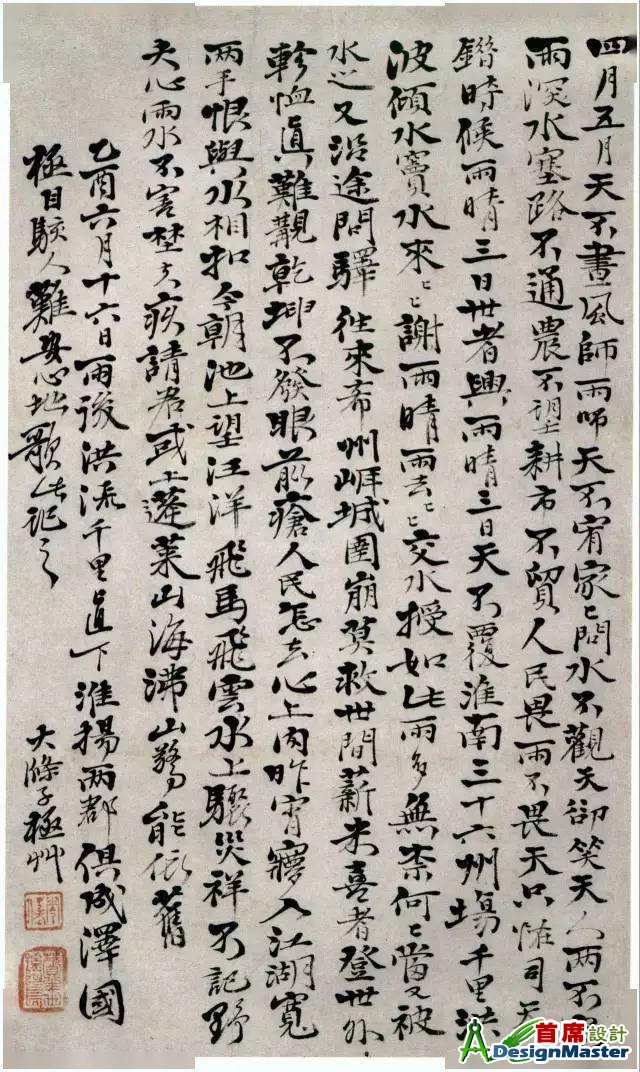 四月五月天不晝風師雨師天不宥家々問水不觀天卻笑天人兩不
雨深水塞路不通農不望耕市不貿人民畏雨不畏天只怪司天
錯時候雨晴三日世者興雨晴三日天不覆淮南三十六州場千里洪
波傾水竇水來々々謝雨晴雨去々々交水授如此雨多無柰何々當又被
水心又沿途問驛往來希州岸城圍崩莫救世間薪米喜者登世外
軫恤真難覯乾坤不發眼前瘡人民怎去心上肉昨宵寢入江湖寬
兩手恨與水相扣今朝池上望汪洋飛馬飛雲水上驟災祥不記野
夫心雨水不害埜夫疾請君或上蓬萊山海沸山驚能依舊
乙酉六月十六日雨後洪流千里直下淮揚兩都俱成澤國
極目駭人難安心地歌此記之
大滌子極艸
首席設計
DesignMaster